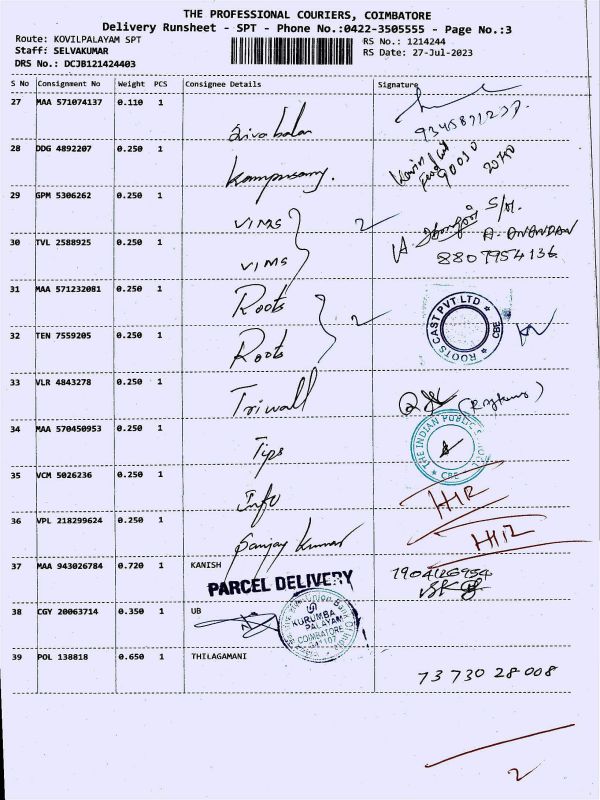 THE PROFESSIONAL COURIERS, COIMBATORE
Delivery Runsheet - SPT - Phone No.:0422-3505555 - Page No.:3
Route: KOVILPALAYAM SPT
RS No.: 1214244
Staff: SELVAKUMAR
RS Date: 27-Jul-2023
DRS No.: DCJB121424403
S No Consignment No Weight PCS Consignee Details Signature
27 MAA 571074137 0.110 1
28 DDG 4892207 0.250 1
29 GPM 5306262 0.250 1 VIMS 2
A. ANANDAN
30 TVL 2588925 0.250 1 VIMS 8807954136
31 MAA 571232081 0.250 1 Roots
ROOTS CAST PVT LTD CBE
32 TEN 7559205 0.250 1 Roots 2
33 VLR 4843278 0.250 1 Triwall
34 MAA 570450953 0.250 1 Tips
THE INDIAN PUBLIC CBE
35 VCM 5026236 0.250 1 Info
36 VPL 218299624 0.250 1 Sanjay Kumar
37 MAA 943026784 0.720 1 KANISH
PARCEL DELIVERY
38 CGY 20063714 0.350 1 UB
KURUMBA
PALAYAM
COIMBATORE
39 POL 138818 0.650 1 THILAGAMANI 73730 28 008
2